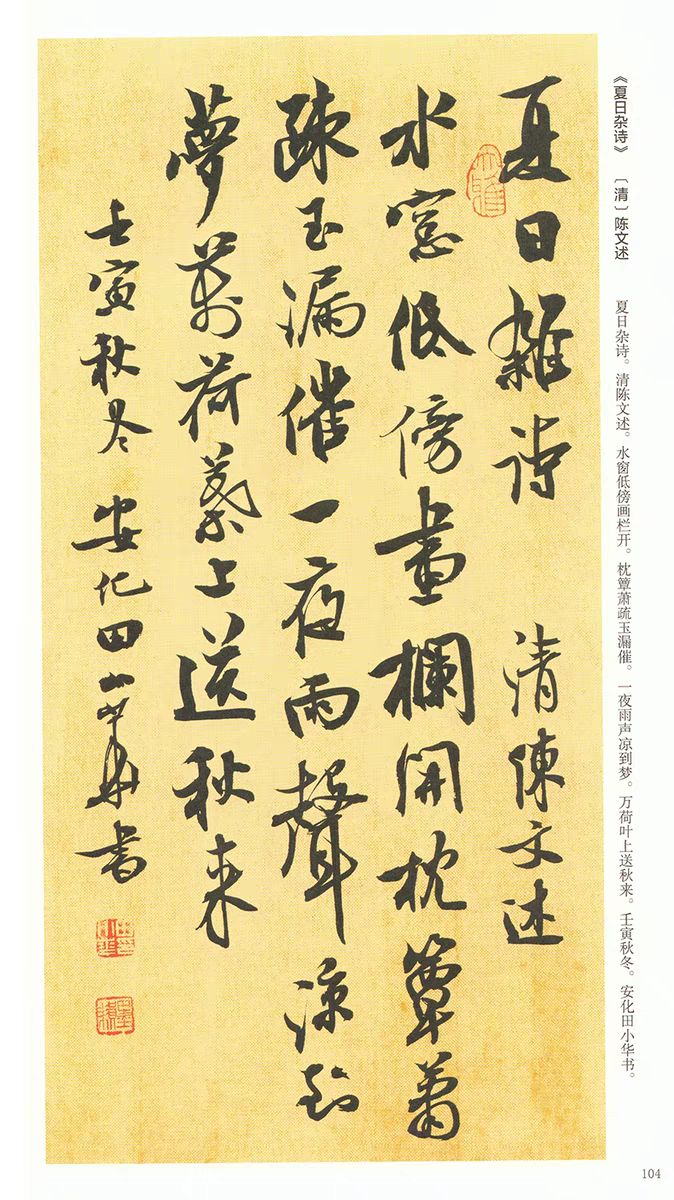 《夏日杂诗》 〔清〕陈文述
夏日杂诗。清陈文述。水窗低傍画栏开。枕簟萧疏玉漏催。一夜雨声凉到梦。万荷叶上送秋来。壬寅秋冬。安化田小华书。
夏日雜詩 清陳文述
水窓低傍畫欄開枕簟蕭
疎玉漏催一夜雨聲涼到
夢萬荷葉上送秋来
壬寅秋冬 安化田小華書
104